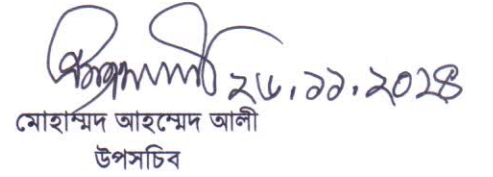 ২৬.১১.২০২৪
মোহাম্মদ আহম্মেদ আলী
উপসচিব